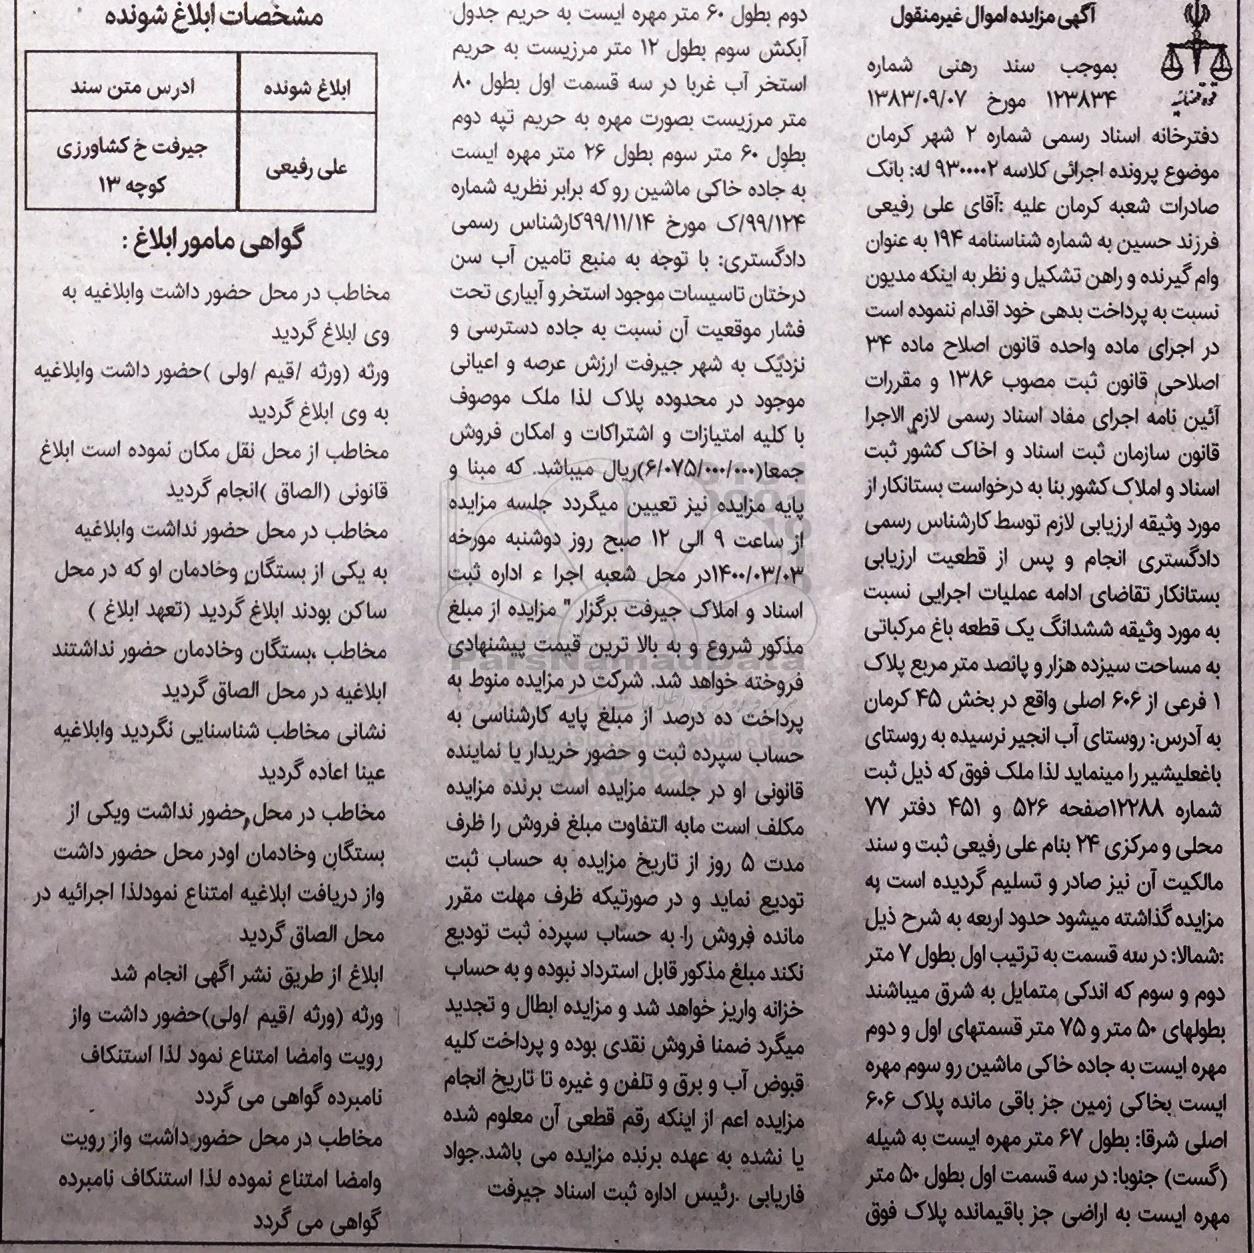 آگهی مزایده اموال غیرمنقول
بموجب سند رهنی شماره
۱۲۳۸۳۴ مورخ ۱۳۸۳/۰۹/۰۷
دفترخانه اسناد رسمی شماره ۲ شهر کرمان
موضوع پرونده اجرائی کلاسه ۹۳۰۰۰۰۲ له: بانک
صادرات شعبه کرمان علیه :آقای علی رفیعی
فرزند حسین به شماره شناسنامه ۱۹۴ به عنوان
وام گیرنده و راهن تشکیل و نظر به اینکه مدیون
نسبت به پرداخت بدهی خود اقدام ننموده است
در اجرای ماده واحده قانون اصلاح ماده ۳۴
اصلاحی قانون ثبت مصوب ۱۳۸۶ و مقررات
آئین نامه اجرای مفاد اسناد رسمی لازم الاجرا
قانون سازمان ثبت اسناد و اخاک کشور ثبت
اسناد و املاک کشور بنا به درخواست بستانکار از
مورد وثیقه ارزیابی لازم توسط کارشناس رسمی
دادگستری انجام و پس از قطعیت ارزیابی
بستانکار تقاضای ادامه عملیات اجرایی نسبت
به مورد وثیقه ششدانگ یک قطعه باغ مرکباتی
به مساحت سیزده هزار و پانصد متر مربع پلاک
۱ فرعی از ۶۰۶ اصلی واقع در بخش ۴۵ کرمان
به آدرس: روستای آب انجیر نرسیده به روستای
باغعلیشیر را مینماید لذا ملک فوق که ذیل ثبت
شماره ۱۲۲۸۸صفحه ۵۲۶ و ۴۵۱ دفتر ۷۷
محلی و مرکزی ۲۴ بنام علی رفیعی ثبت و سند
مالکیت آن نیز صادر و تسلیم گردیده است به
مزایده گذاشته میشود حدود اربعه به شرح ذیل
:شمالا: در سه قسمت به ترتیب اول بطول ۷ متر
دوم و سوم که اندکی متمایل به شرق میباشند
بطولهای ۵۰ متر و ۷۵ متر قسمتهای اول و دوم
مهره ایست به جاده خاکی ماشین رو سوم مهره
ایست بخاکی زمین جز باقی مانده پلاک ۶۰۶
اصلی شرقا: بطول ۶۷ متر مهره ایست به شیله
(گست) جنوبا: در سه قسمت اول بطول ۵۰ متر
مهره ایست به اراضی جز باقیمانده پلاک فوق
دوم بطول ۶۰ متر مهره ایست به حریم جدول
آبکش سوم بطول ۱۲ متر مرزیست به حریم
استخر آب غربا در سه قسمت اول بطول ۸۰
متر مرزیست بصورت مهره به حریم تپه دوم
بطول ۶۰ متر سوم بطول ۲۶ متر مهره ایست
به جاده خاکی ماشین رو که برابر نظریه شماره
۹۹/۱۲۴/ک مورخ ۹۹/۱۱/۱۴کارشناس رسمی
دادگستری: با توجه به منبع تامین آب سن
درختان تاسیسات موجود استخر و آبیاری تحت
فشار موقعیت آن نسبت به جاده دسترسی و
نزدیک به شهر جیرفت ارزش عرصه و اعیانی
موجود در محدوده پلاک لذا ملک موصوف
با کلیه امتیازات و اشتراکات و امکان فروش
جمعا(۶/۰۷۵/۰۰۰/۰۰۰)ریال میباشد. که مبنا و
پایه مزایده نیز تعیین میگردد جلسه مزایده
از ساعت ۹ الی ۱۲ صبح روز دوشنبه مورخه
۱۴۰۰/۰۳/۰۳در محل شعبه اجرا ء اداره ثبت
اسناد و املاک جیرفت برگزار" مزایده از مبلغ
مذکور شروع و به بالا ترین قیمت پیشنهادی
فروخته خواهد شد. شرکت در مزایده منوط به
پرداخت ده درصد از مبلغ پایه کارشناسی به
حساب سپرده ثبت و حضور خریدار یا نماینده
قانونی او در جلسه مزایده است برنده مزایده
مکلف است مابه التفاوت مبلغ فروش را ظرف
مدت ۵ روز از تاریخ مزایده به حساب ثبت
تودیع نماید و در صورتیکه ظرف مهلت مقرر
مانده فروش را به حساب سپرده ثبت تودیع
نکند مبلغ مذکور قابل استرداد نبوده و به حساب
خزانه واریز خواهد شد و مزایده ابطال و تجدید
میگرد ضمنا فروش نقدی بوده و پرداخت کلیه
قبوض آب و برق و تلفن و غیره تا تاریخ انجام
مزایده اعم از اینکه رقم قطعی آن معلوم شده
یا نشده به عهده برنده مزایده می باشد.جواد
فاریابی .رئیس اداره ثبت اسناد جیرفت
مشخصات ابلاغ شونده
ابلاغ شونده ادرس متن سند
علی رفیعی جیرفت خ کشاورزی
کوچه ۱۳
گواهی مامور ابلاغ :
مخاطب در محل حضور داشت وابلاغیه به
وی ابلاغ گردید
ورثه (ورثه /قیم /ولی )حضور داشت وابلاغیه
به وی ابلاغ گردید
مخاطب از محل نقل مکان نموده است ابلاغ
قانونی (الصاق )انجام گردید
مخاطب در محل حضور نداشت وابلاغیه
به یکی از بستگان وخادمان او که در محل
ساکن بودند ابلاغ گردید (تعهد ابلاغ )
مخاطب ،بستگان وخادمان حضور نداشتند
ابلاغیه در محل الصاق گردید
نشانی مخاطب شناسنایی نگردید وابلاغیه
عینا اعاده گردید
مخاطب در محل حضور نداشت ویکی از
بستگان وخادمان اودر محل حضور داشت
واز دریافت ابلاغیه امتناع نمودلذا اجرائیه در
محل الصاق گردید
ابلاغ از طریق نشر اگهی انجام شد
ورثه (ورثه /قیم /ولی)حضور داشت واز
رویت وامضا امتناع نمود لذا استنکاف
نامبرده گواهی می گردد
مخاطب در محل حضور داشت واز رویت
وامضا امتناع نموده لذا استنکاف نامبرده
گواهی می گردد
ParsNamadData